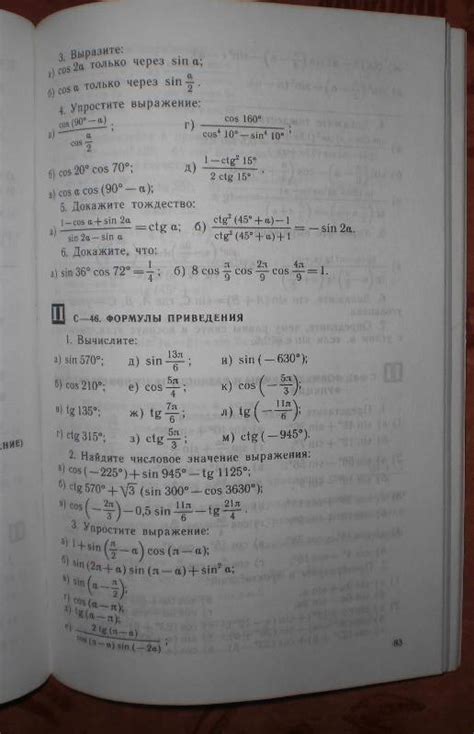 3. Выразите:
а) cos 2α только через sin α;
б) cos α только через sin α/2.
4. Упростите выражение:
а) cos (90° — α) / cos α/2; г) cos 160° / cos⁴ 10° — sin⁴ 10°;
б) cos 20° cos 70°; д) 1 — ctg² 15° / 2 ctg 15°.
в) cos α cos (90° — α);
5. Докажите тождество:
а) 1 — cos α + sin 2α / sin 2α — sin α = ctg α; б) ctg² (45° + α) — 1 / ctg² (45° + α) + 1 = — sin 2α.
6. Докажите, что:
а) sin 36° cos 72° = 1/4; б) 8 cos π/9 cos 2π/9 cos 4π/9 = 1.
П С—46. ФОРМУЛЫ ПРИВЕДЕНИЯ
1. Вычислите:
а) sin 570°; д) sin 13π/6; и) sin (—630°);
б) cos 210°; е) cos 5π/4; к) cos (—5π/3);
в) tg 135°; ж) tg 7π/6; л) tg (—11π/6);
г) ctg 315°; з) ctg 5π/3; м) ctg (—945°).
2. Найдите числовое значение выражения:
а) cos (—225°) + sin 945° — tg 1125°;
б) ctg 570° + √3 (sin 300° — cos 3630°);
в) cos (—2π/3) — 0,5 sin 11π/6 — tg 21π/4.
3. Упростите выражение:
а) 1 + sin (π/2 — α) cos (π — α);
б) sin (2π + α) sin (π — α) + sin² α;
в) sin (α — π/2);
г) cos (α — π);
д) tg (α — π);
е) 2 tg (π — α) / cos (π — α) sin (— 2α);
83
ЕНИЕ)